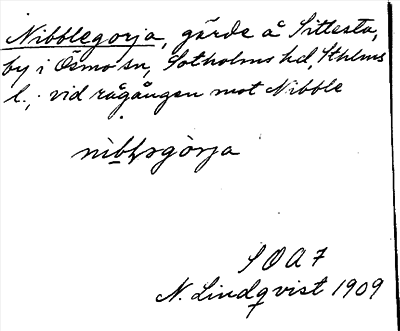 Nibblegorja, gärde å Sittesta,
by i Ösmo sn, Sotholms hd, Sthlms
l., vid rågången mot Nibble
SOA7
N. Lindqvist 1909